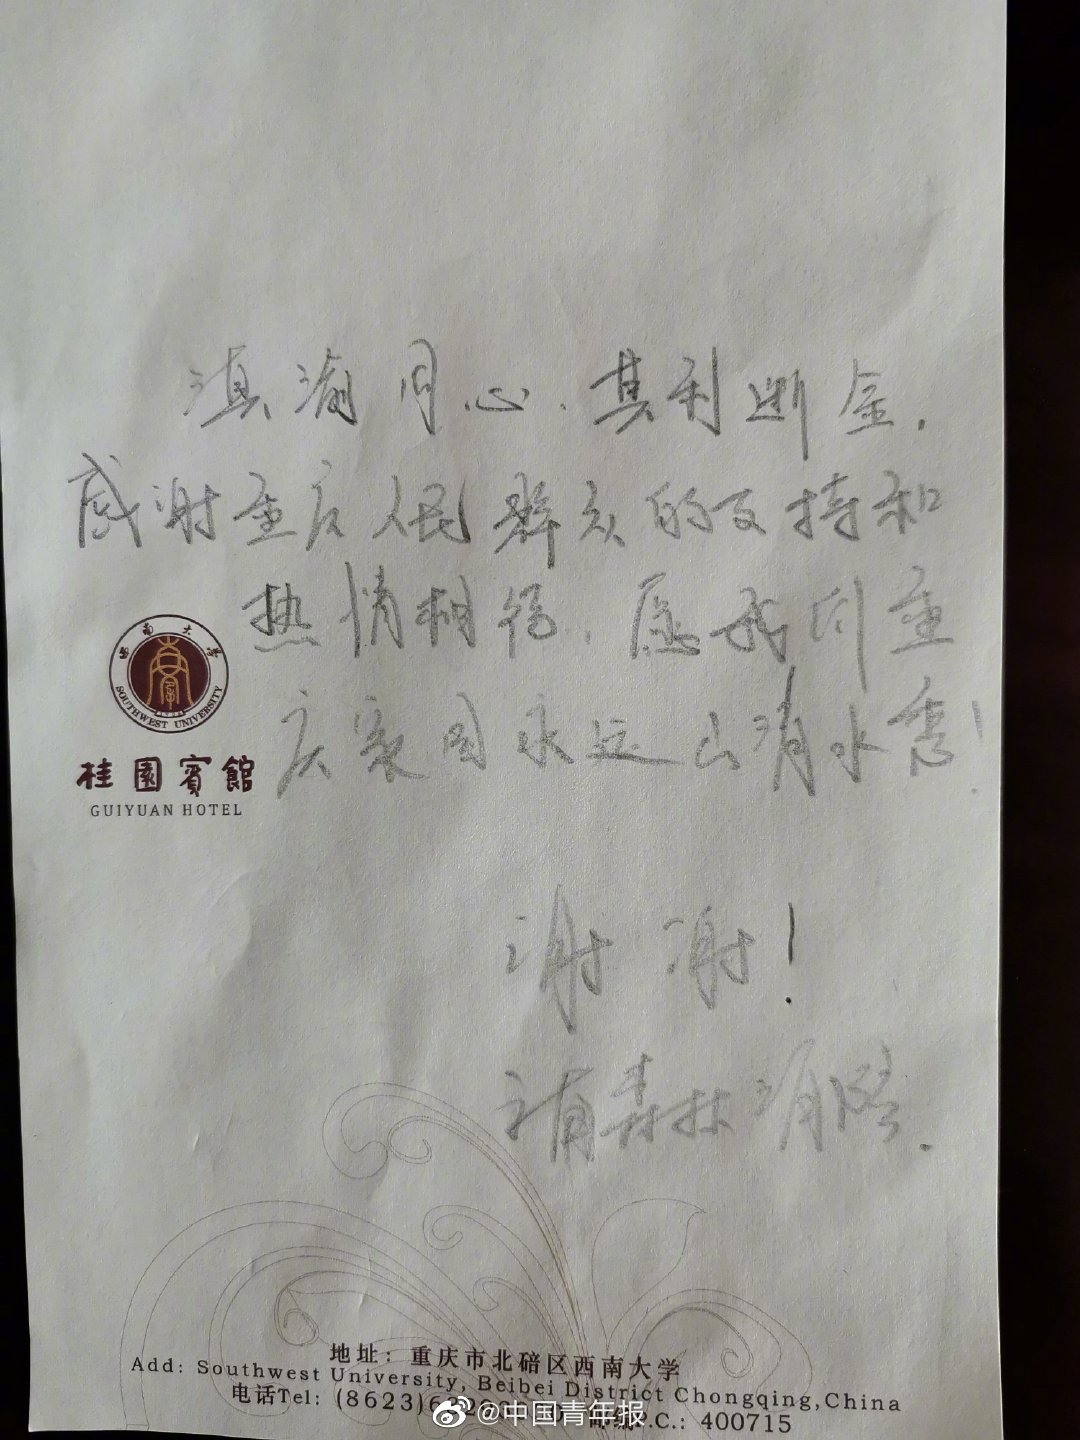 滇渝同心、其利断金.
感谢重庆人民群众的支持和
热情相待、愿我们重
庆家园永远山清水秀!
西南大学
SOUTHWEST UNIVERSITY
桂園賓館
GUIYUAN HOTEL
谢谢!
云南森林消防.
地址：重庆市北碚区西南大学
Add: Southwest University, Beibei District Chongqing,China
电话Tel: (8623)682 邮编P.C.: 400715
@中国青年报